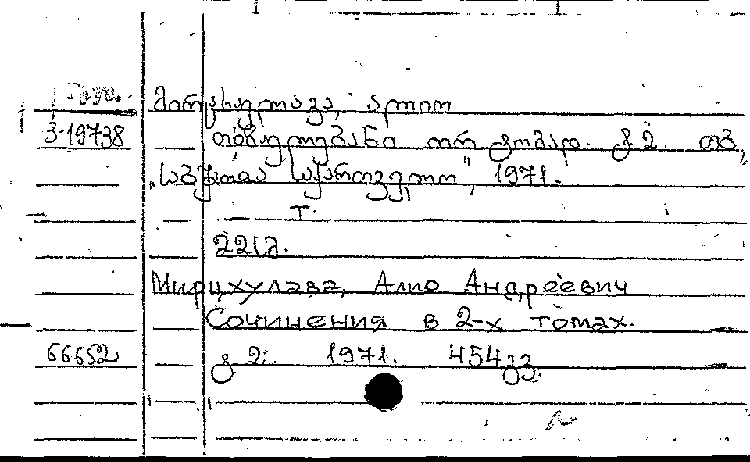 მირცხულავა, ალიო
3-19738 თხზულებანი ორ ტომად. ტ. 2. თბ.,
„საბჭოთა საქართველო", 1971.
т.
221გ.
Мирцхулава, Алио Андреевич
Сочинения в 2-х томах.
66552 ტ 2. 1971. 454 გვ.